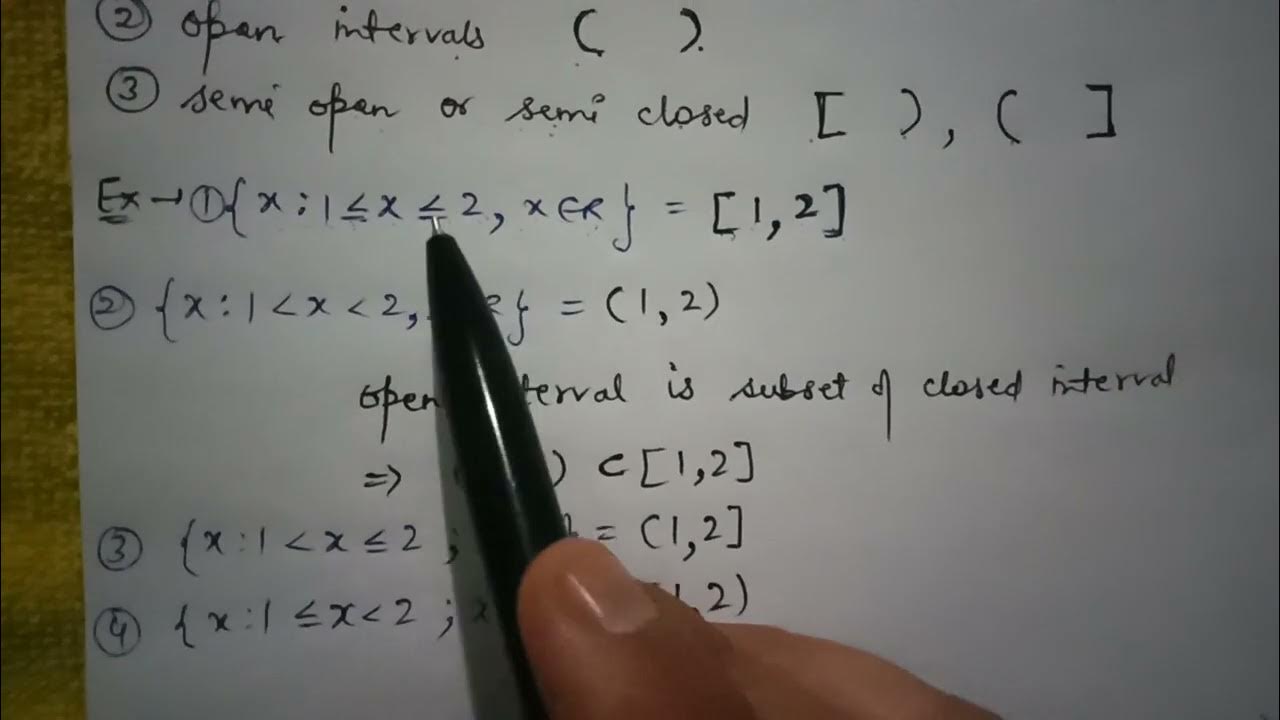 ② open intervals ( ).
③ semi open or semi closed [ ), ( ]
Ex → ① {x : 1 ≤ x ≤ 2, x ∈ R } = [1, 2]
② {x : 1 < x < 2, R} = (1, 2)
open interval is subset of closed interval
⇒ ) ⊂ [1, 2]
③ {x : 1 < x ≤ 2 ; } = (1, 2]
④ {x : 1 ≤ x < 2 ; x 1, 2)